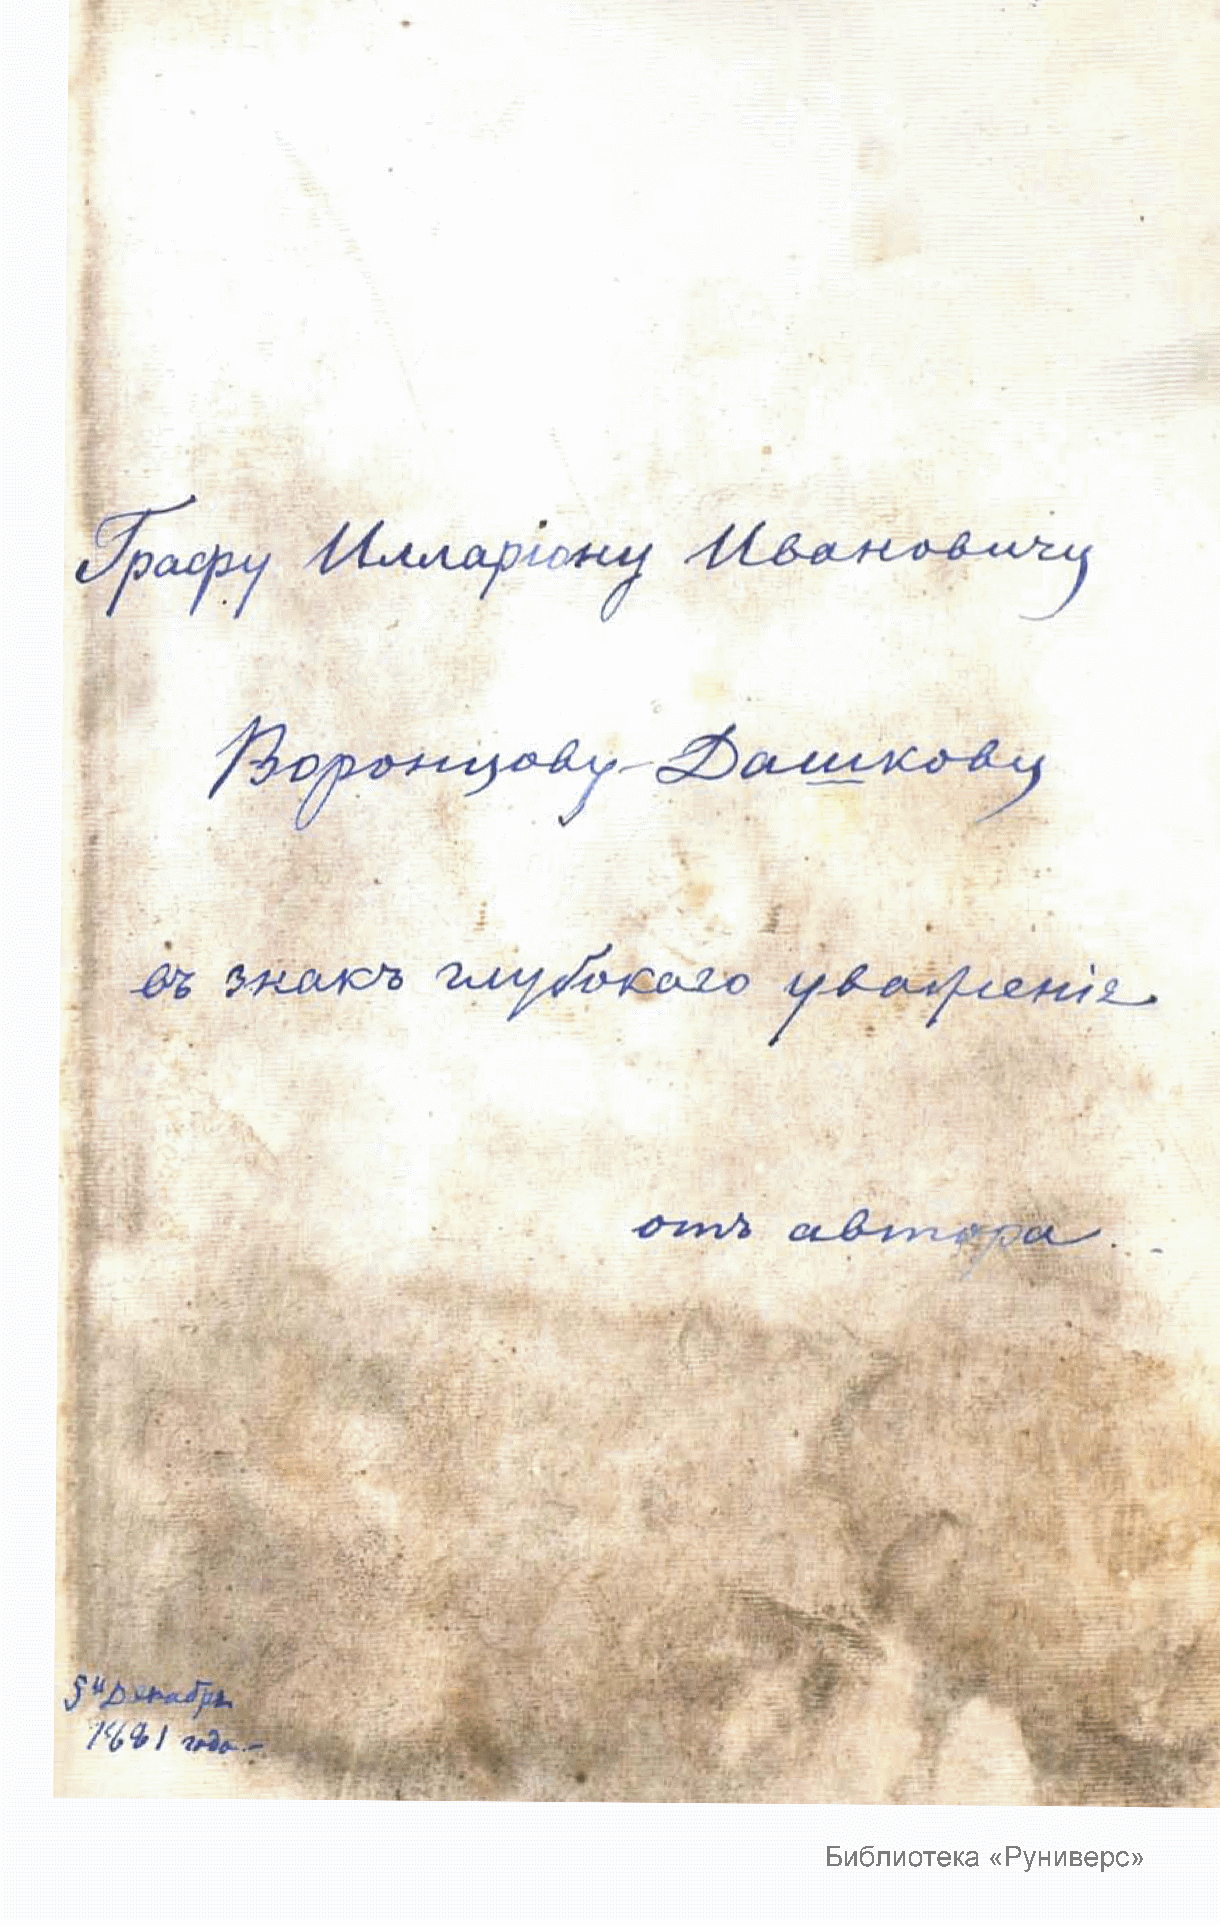 Графу Илларіону Ивановичу
Воронцову-Дашкову
въ знакъ глубокаго уваженіе
отъ автора.
5го Декабря
1881 года.–
Библиотека «Руниверс»